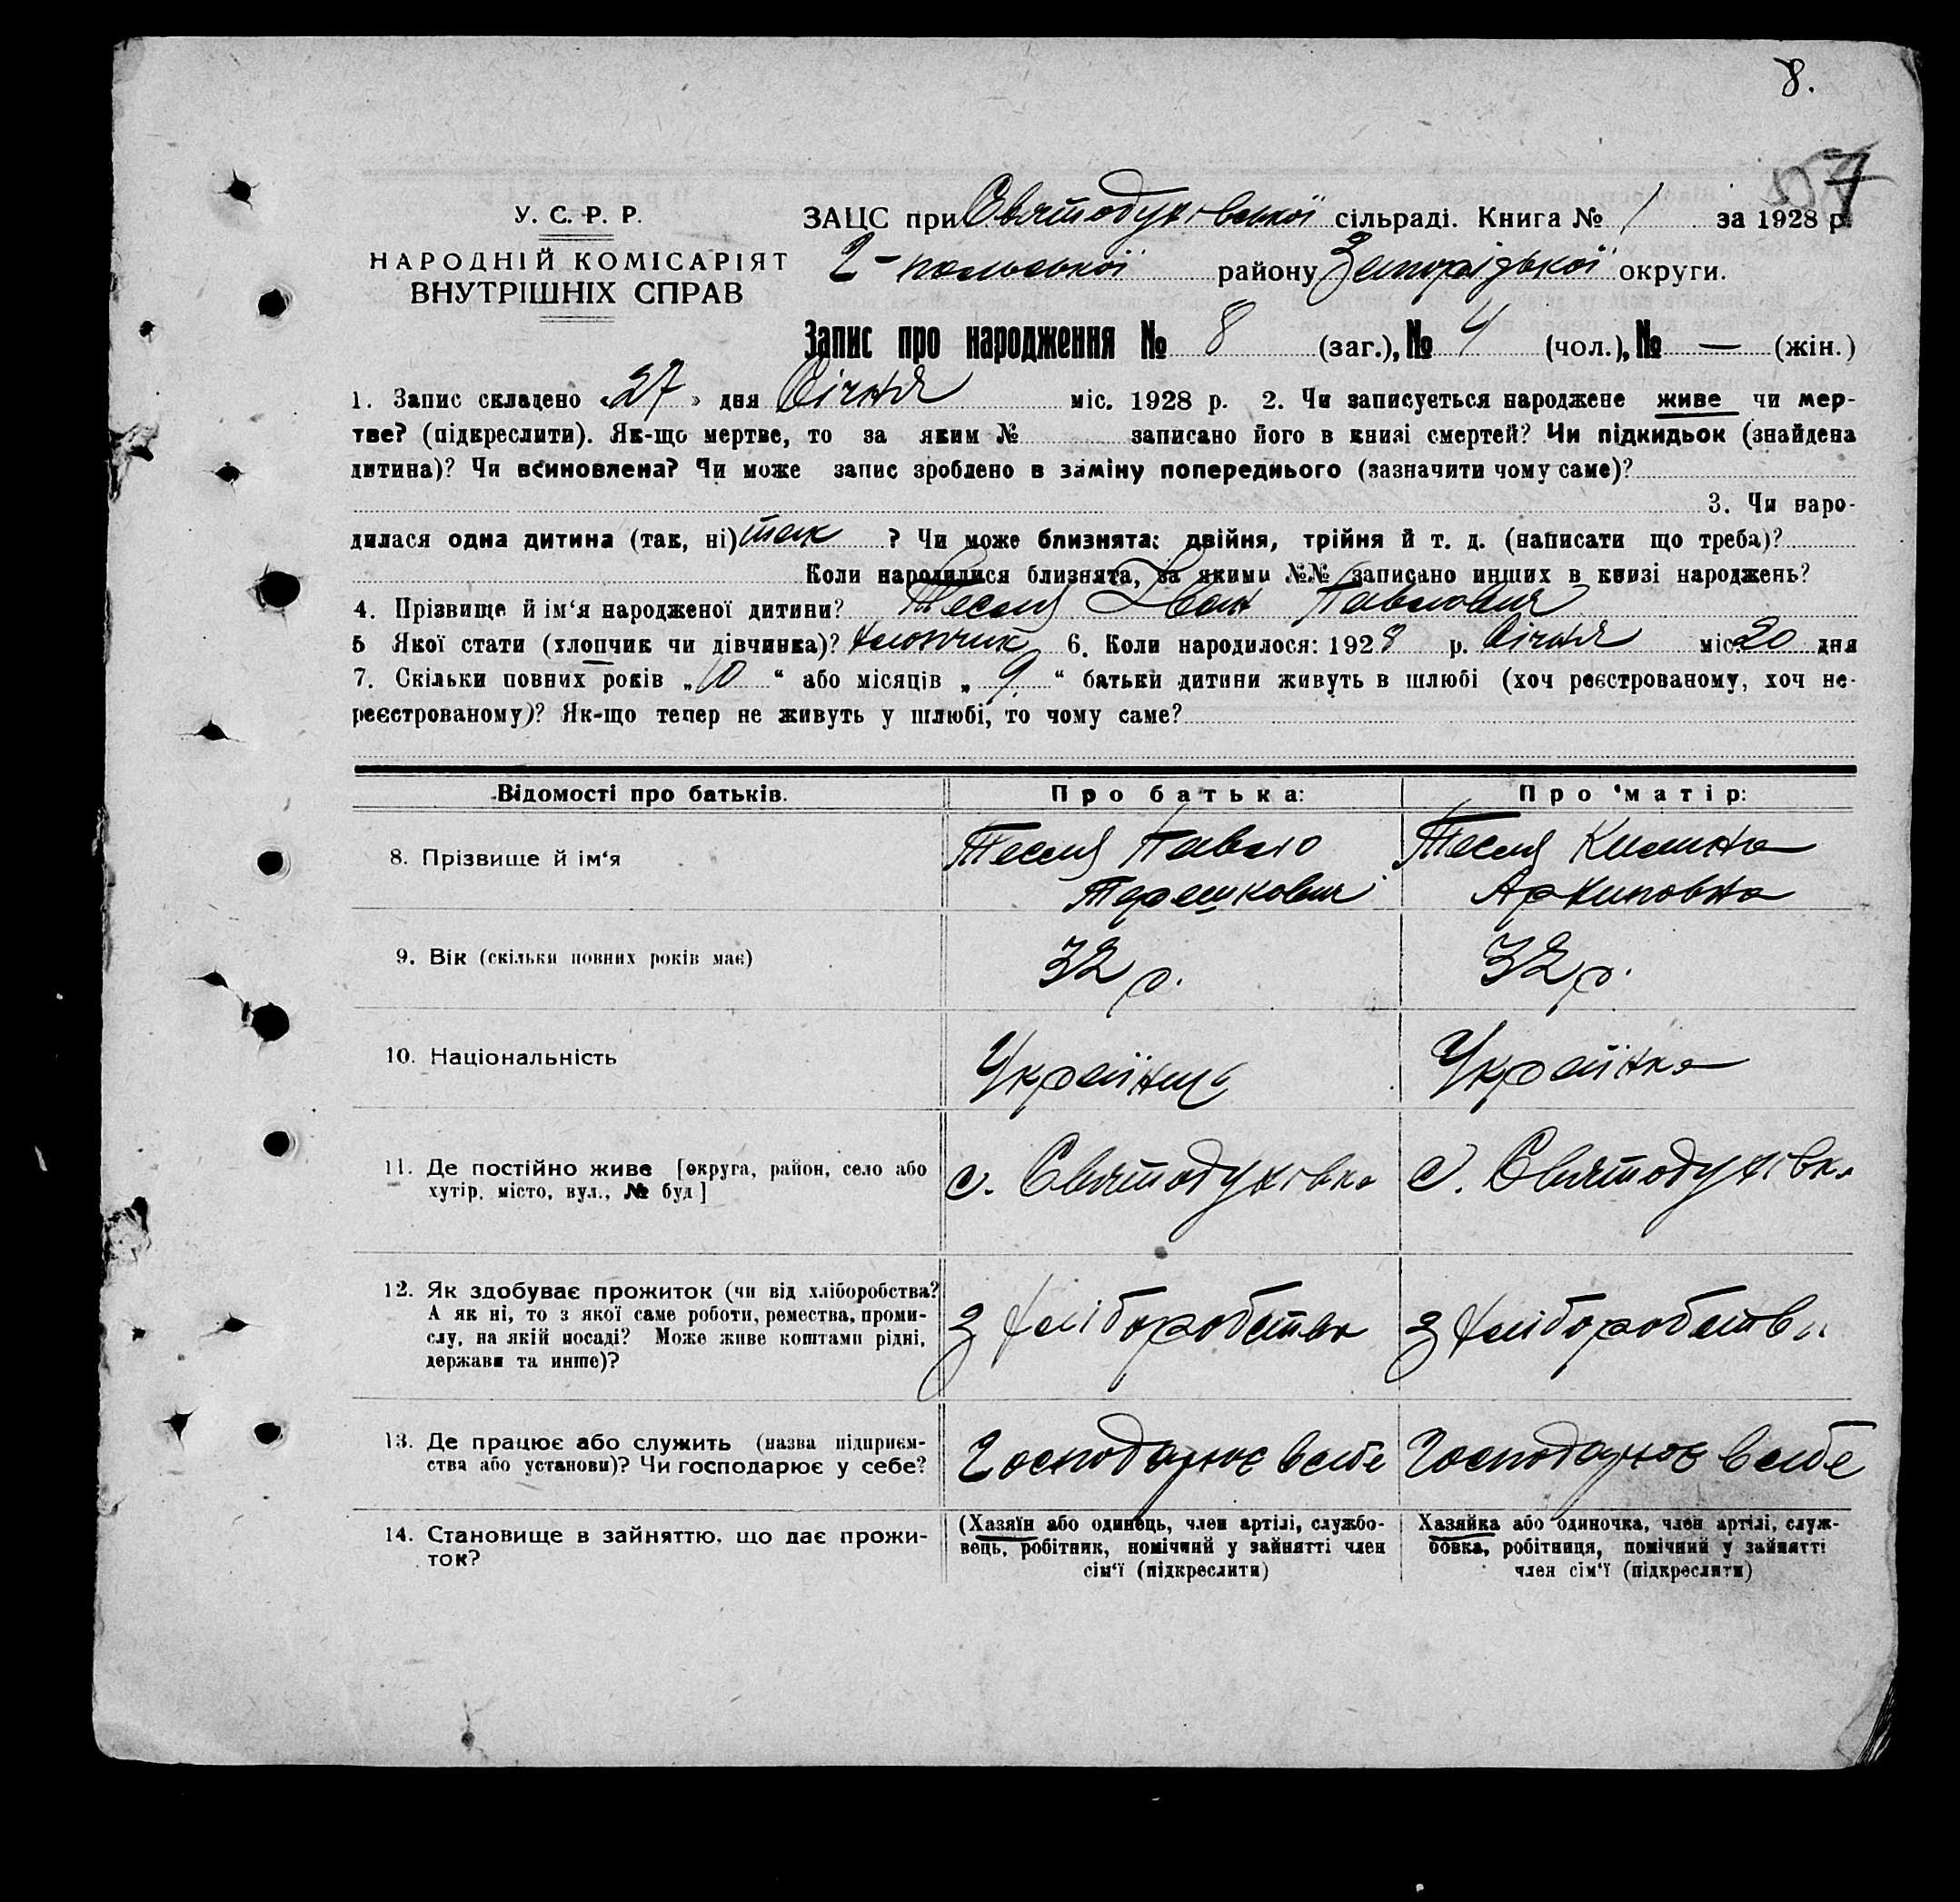 8.
7
У. С. Р. Р.
НАРОДНІЙ КОМІСАРІЯТ
ВНУТРІШНІХ СПРАВ
ЗАЦС при Святодухівської сільраді. Книга № 1 за 1928 р.
Г-польської району Запорізької округи.
Запис про народження № 8 (заг.), № 4 (чол.), № — (жін.)
1. Запис складено «27» дня Січня міс. 1928 р. 2. Чи записується народжене живе чи мер-
тве? (підкреслити). Як-що мертве, то за яким № записано його в книзі смертей? Чи підкидьок (знайдена
дитина)? Чи всиновлена? Чи може запис зроблено в заміну попереднього (зазначити чому саме)?
3. Чи наро-
дилася одна дитина (так, ні) так ? Чи може близнята: двійня, трійня й т. д. (написати що треба)?
Коли народилися близнята, за якими №№ записано инших в книзі народжень?
4. Прізвище й ім‘я народженої дитини? Тесля Іван Павлович
5 Якої стати (хлопчик чи дівчинка)? Хлопчик 6. Коли народилося: 1928 р. Січня міс. 20 дня
7. Скільки повних років „10“ або місяців „9“ батьки дитини живуть в шлюбі (хоч реєстрованому, хоч не-
реєстрованому)? Як-що тепер не живуть у шлюбі, то чому саме?
Відомості про батьків.
Про батька:
Про матір:
8. Прізвище й ім‘я
Тесля Павло
Терешкович
Тесля Килина
Архиповна
9. Вік (скільки повних років має)
32 р.
32 р.
10. Національність
Українець
Українка
11. Де постійно живе [округа, район, село або
хутір, місто, вул., № буд]
с. Святодухівка
с. Святодухівка
12. Як здобуває прожиток (чи від хліборобства?
А як ні, то з якої саме роботи, ремества, проми-
слу, на якій посаді? Може живе коштами рідні,
держави та инше)?
з хліборобства
з хліборобства
13. Де працює або служить (назва підприєм-
ства або установи)? Чи господарює у себе?
Господарює в себе
Господарює в себе
14. Становище в зайняттю, що дає прожи-
ток?
(Хазяїн або одинець, член артілі, службо-
вець, робітник, помічний у зайнятті член
сім‘ї (підкреслити)
Хазяйка або одиночка, член артілі, служ-
бовка, робітниця, помічний у зайнятті
член сім‘ї (підкреслити)